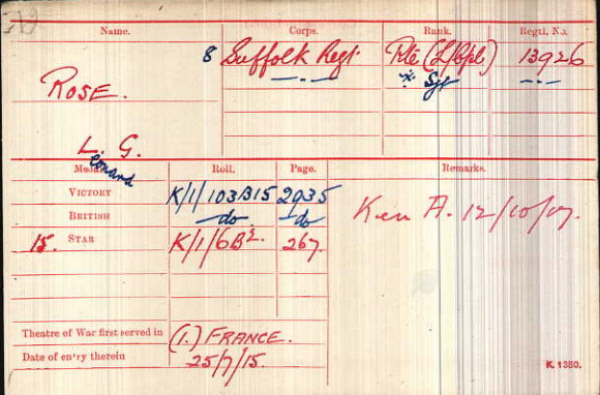 Name. Corps. Rank. Regtl. No.
8 Suffolk Regt. Pte (L/Cpl) 13926
ROSE. —.— * Sjt —.—
L. G.
eonard
Medal. Roll. Page. Remarks.
VICTORY K/1/103B15 2935
BRITISH do do
15. STAR K/1/6B2. 267.
A. 12/10/17.
Theatre of War first served in (1.) FRANCE.
Date of entry therein 25/7/15.
K. 1380.